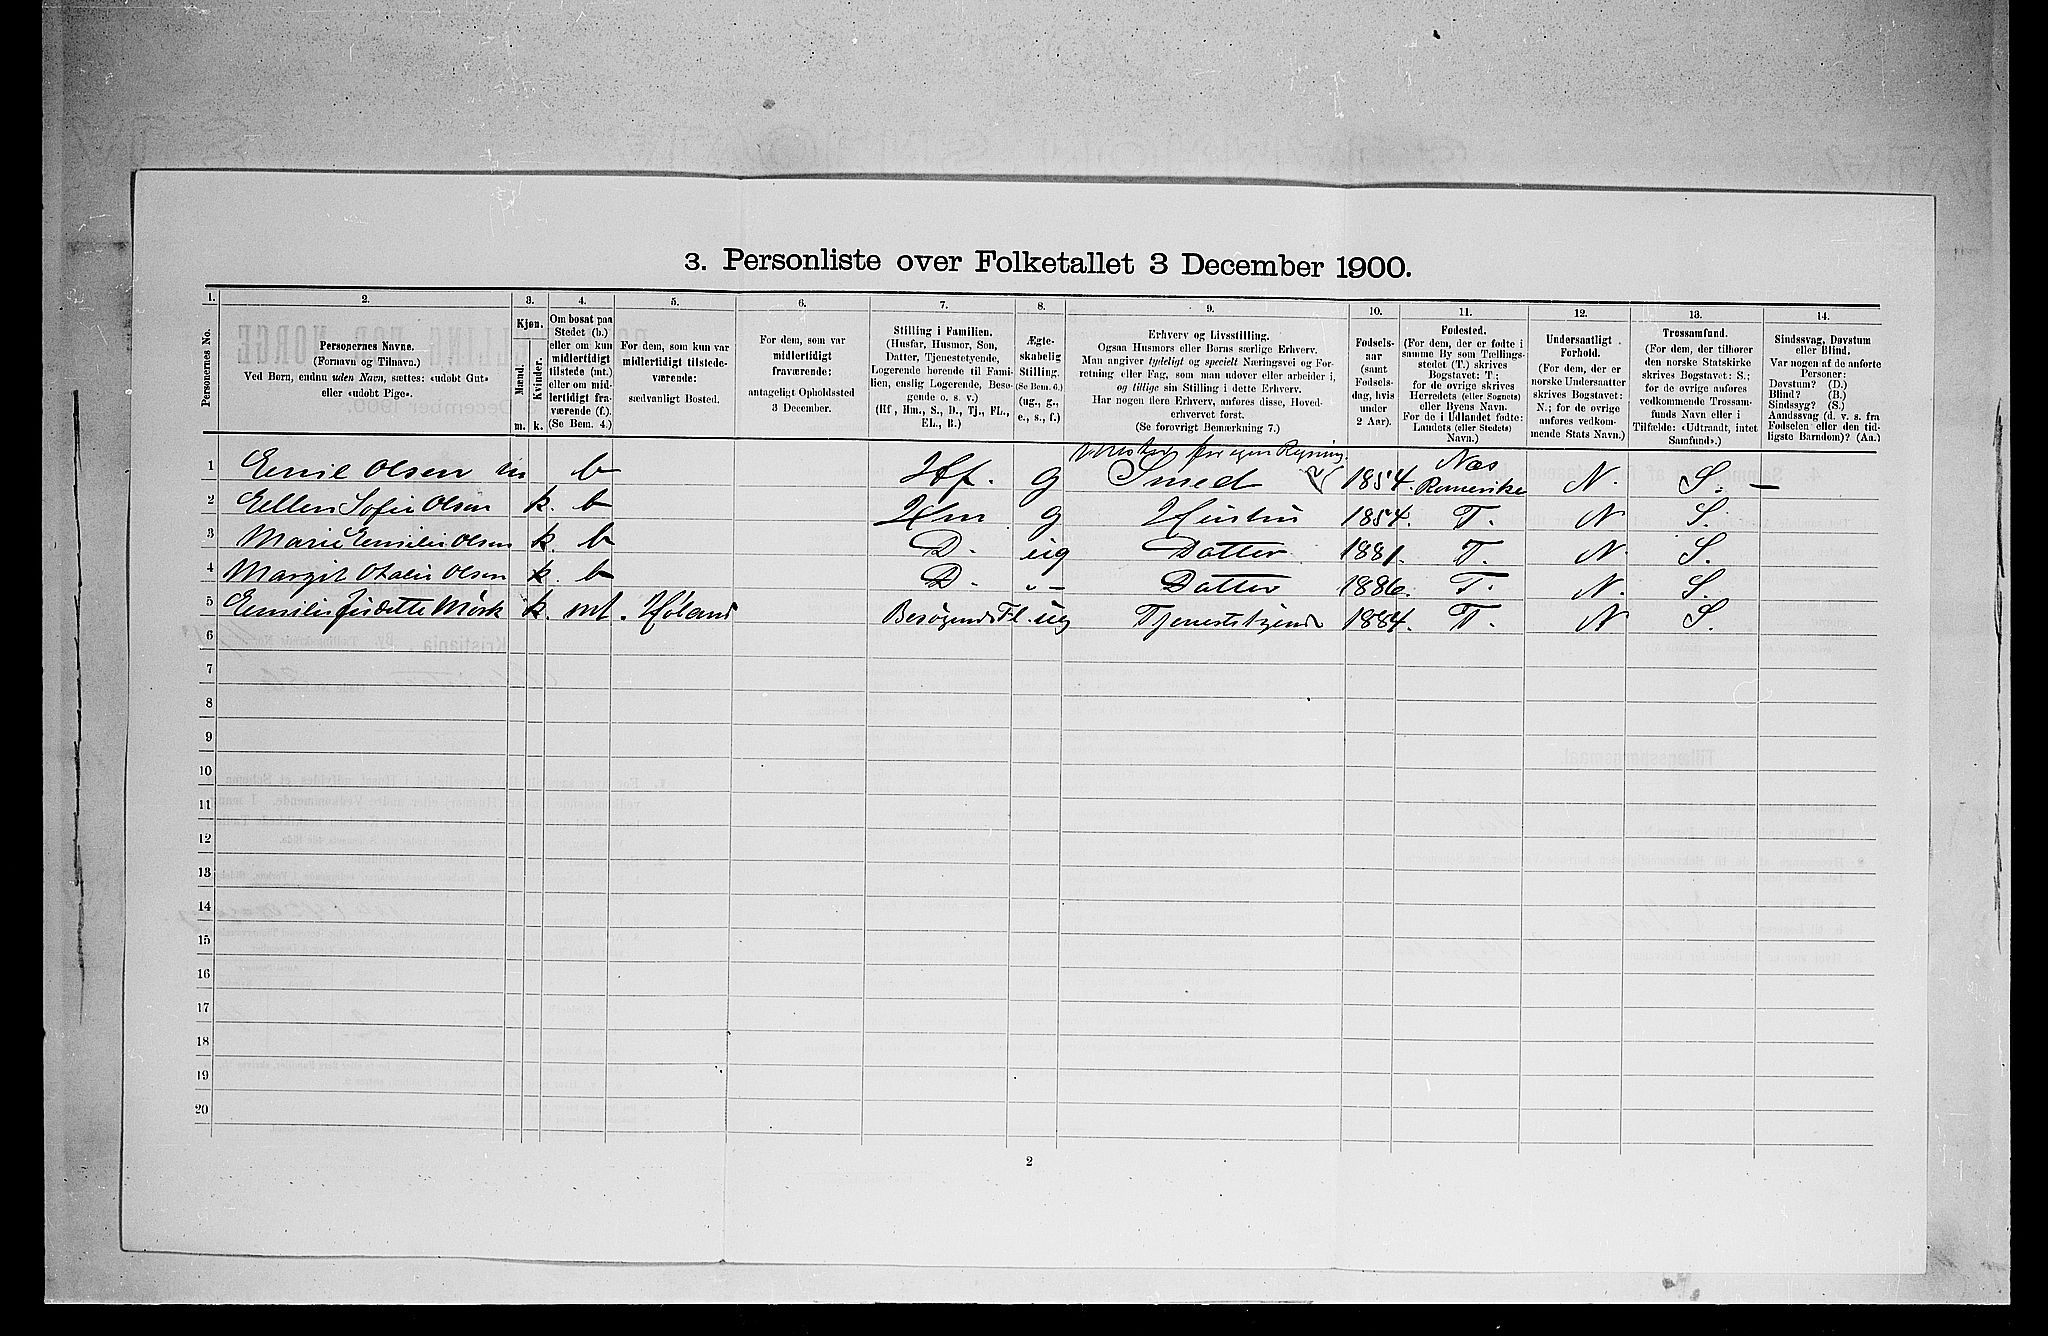 3. Personliste over Folketallet 3 December 1900.
1. 2. 3. 4. 5. 6. 7. 8. 9. 10. 11. 12. 13. 14.
Personernes No.
Personernes Navne.
(Fornavn og Tilnavn.)
Ved Børn, endnu uden Navn, sættes: «udøbt Gut»
eller «udøbt Pige».
Kjøn.
Mænd. Kvinder.
m. k.
Om bosat paa
Stedet (b.)
eller om kun
midlertidigt
tilstede (mt.)
eller om mid-
lertidigt fra-
værende (f.).
(Se Bem. 4.)
For dem, som kun var
midlertidigt tilstede-
værende:
sædvanligt Bosted.
For dem, som var
midlertidigt
fraværende:
antageligt Opholdssted
3 December.
Stilling i Familien.
(Husfar, Husmor, Søn,
Datter, Tjenestetyende,
Logerende hørende til Fami-
lien, enslig Logerende, Besø-
gende o. s. v.)
(Hf, Hm., S., D., Tj., FL.,
EL., B.)
Ægte-
skabelig
Stilling.
(Se Bem. 6.)
(ug., g.,
e., s., f.)
Erhverv og Livsstilling.
Ogsaa Husmors eller Børns særlige Erhverv.
Man angiver tydeligt og specielt Næringsvei og For-
retning eller Fag, som man udøver eller arbeider i,
og tillige sin Stilling i dette Erhverv.
Har nogen flere Erhverv, anføres disse, Hoved-
erhvervet først.
(Se forøvrigt Bemærkning 7.)
Fødsels-
aar
(samt
Fødsels-
dag, hvis
under
2 Aar).
Fødested.
(For dem, der er fødte i
samme By som Tællings-
stedet (T.) skrives
Bogstavet: T;
for de øvrige skrives
Herredets (eller Sognets)
eller Byens Navn.
For de i Udlandet fødte:
Landets (eller Stedets)
Navn.)
Undersaatligt
Forhold.
(For dem, der er
norske Undersaatter
skrives Bogstavet:
N.; for de øvrige
anføres vedkom-
mende Stats Navn.)
Trossamfund.
(For dem, der tilhører
den norske Statskirke
skrives Bogstavet: S.;
for de øvrige anføres
vedkommende Trossam-
funds Navn eller i
Tilfælde: «Udtraadt, intet
Samfund».)
Sindssvag, Døvstum
eller Blind.
Var nogen af de anførte
Personer:
Døvstum? (D.)
Blind? (B.)
Sindssyg? (S.)
Aandssvag (d. v. s. fra
Fødselen eller den tid-
ligste Barndom)? (Aa.)
for egen Regning.
1 Emil Olsen m b Hf. g Smed 1854. Næs Romerike N. S. —
2 Ellen Sofie Olsen k. b Hm g Hustru 1854. T. N S.
3 Marie Emilie Olsen k. b D. ug Datter 1881. T. N. S.
4 Margit Otalie Olsen k. b D. „ – Datter 1886. T. N. S.
5 Emilie Mørk k. mt. Høland Besøgende Fl. ug Tjenestetyende 1884. T. N S.
6
7
8
9
10
11
12
13
14
15
16
17
18
19
20
2